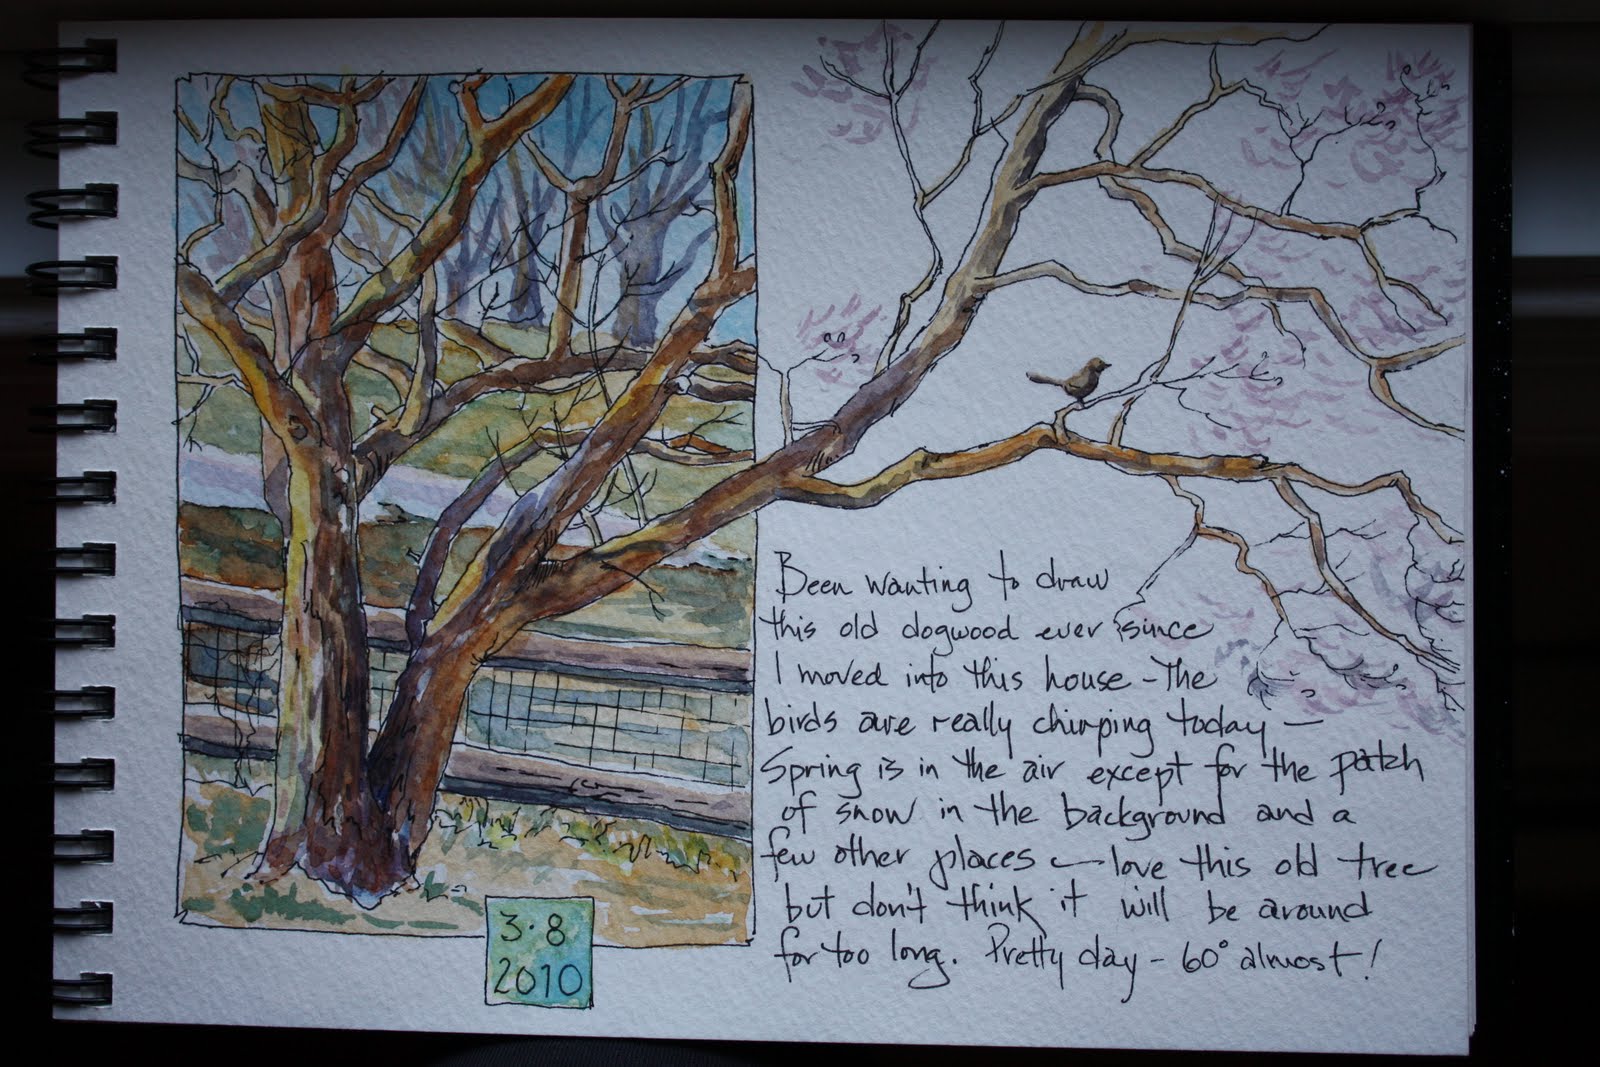 Been wanting to draw
this old dogwood ever since
I moved into this house - The
birds are really chirping today -
Spring is in the air except for the patch
of snow in the background and a
few other places - love this old tree
but don't think it will be around
for too long. Pretty day - 60° almost!
3·8
2010